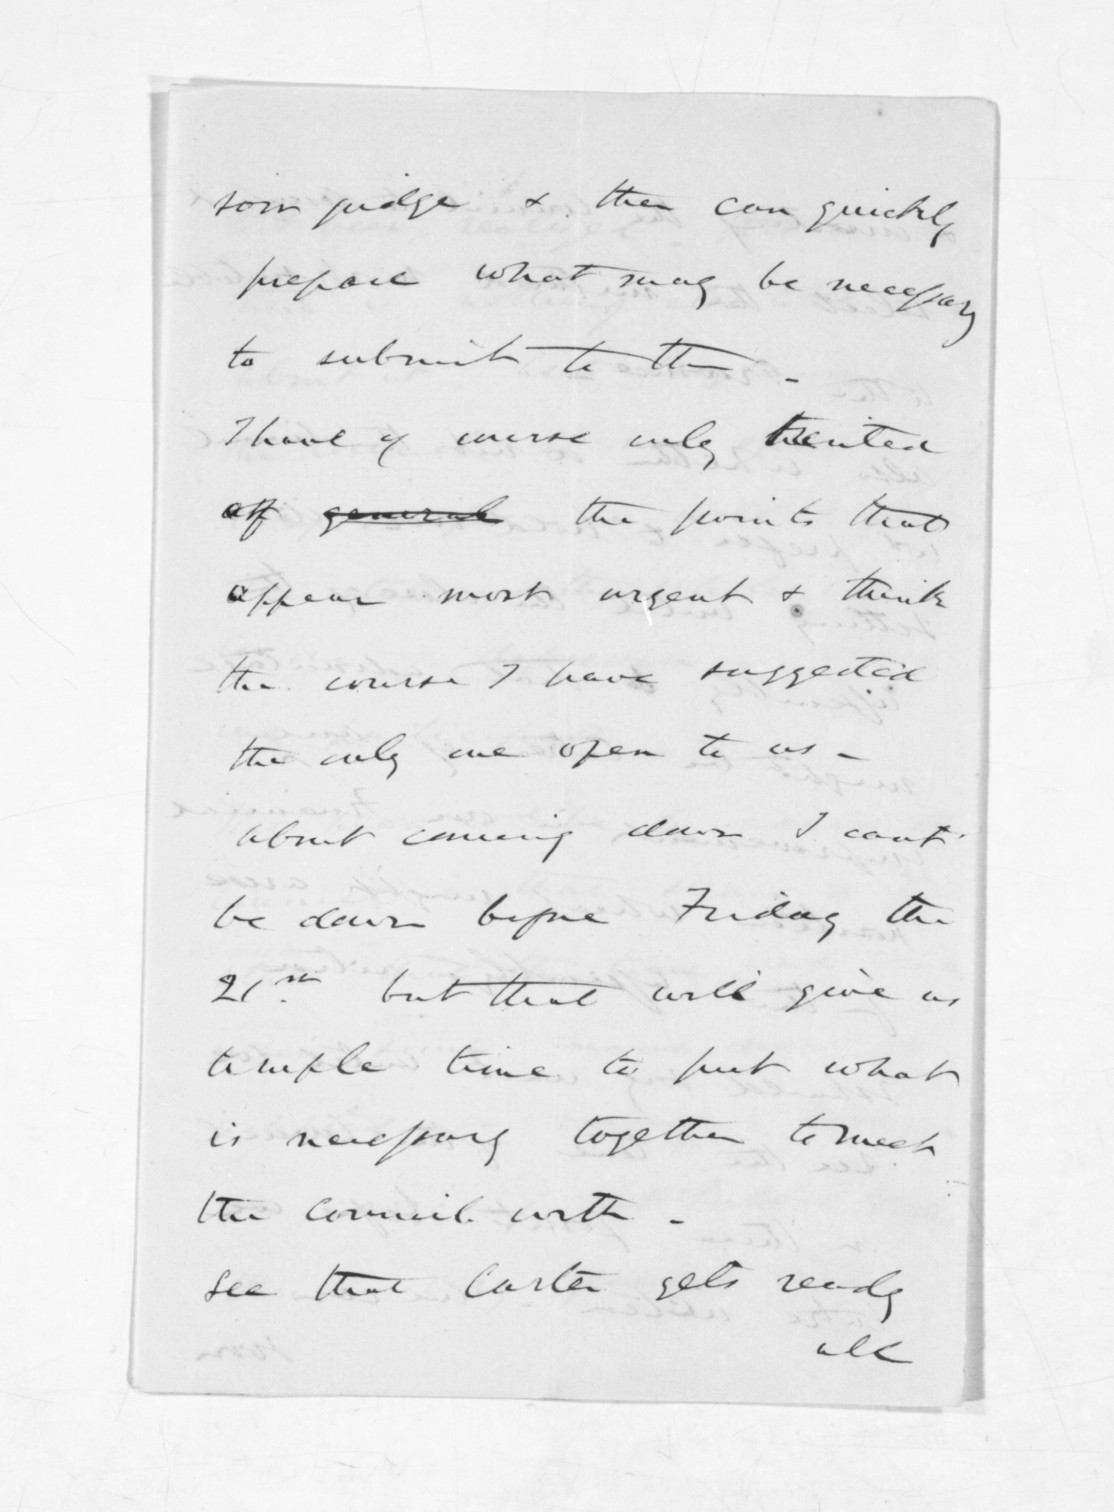 soon judge & then can quickly
prepare what may be necessary
to submit to them -
I have of course only
off general the points that
appear most urgent & think
the course I have suggested
the only one open to us -
about coming down I cant
be down before Friday the
21st. but that will give us
ample time to put what
is necessary together to meet
the Council with -
see that Carter gets ready
all